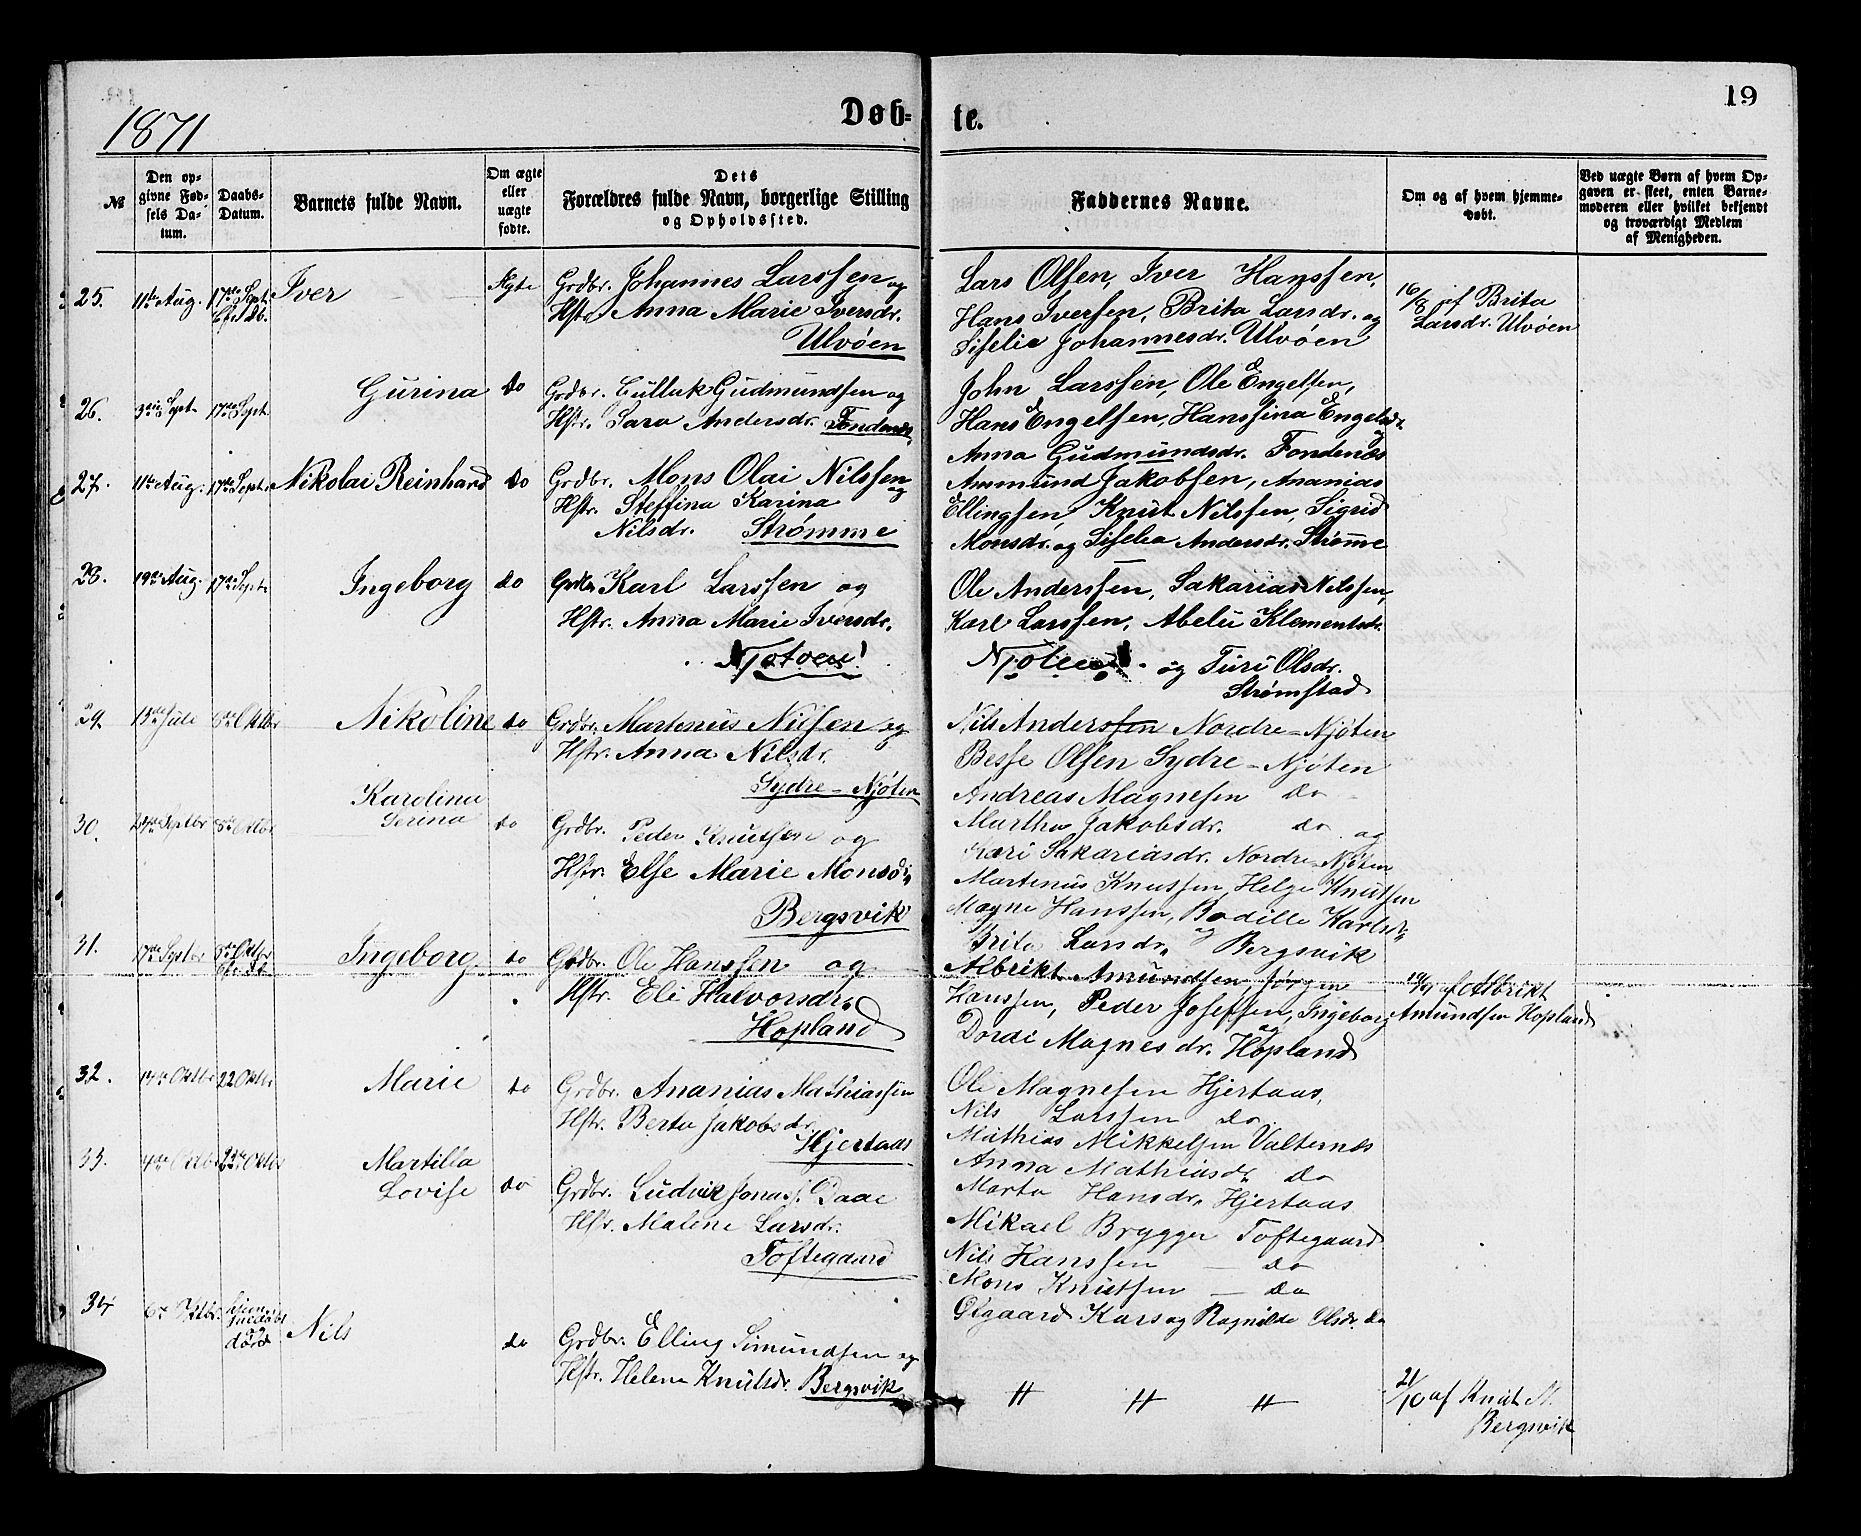 1871
Døb-
te.
19
№
Den op-
givne Fød-
sels Da-
tum.
Daabs-
Datum.
Barnets fulde Navn.
Om ægte
eller
uægte
fødte.
Dets
Forældres fulde Navn, borgerlige Stilling
og Opholdssted.
Faddernes Navne.
Om og af hvem hjemme-
døbt.
Ved uægte Børn af hvem Op-
gaven er skeet, enten Barne-
moderen eller hvilket bekjendt
og troværdigt Medlem
af Menigheden.
25. 11te Aug. 17de Sept. Iver Ægte
Grdbr. Johannes Larssen og
Hstr. Anna Marie Iversdr.
Ulvøen
Lars Olsen, Iver Hanssen,
Hans Iversen, Brita Larsdr. og
Siselie Johannesdr. Ulvøen
16/8 af Brita
Larsdr. Ulvøen
26. 3die Sept. 17de Sept. Gurina do
Grdbr. Gulluk Gudmundsen og
Hstr. Sara Andersdr. Fondenæs
John Larssen, Ole Engelsen,
Hans Engelsen, Hanssina Engelsdr.
og
Anna Gudmundsdr. Fondenæs
27. 11te Aug. 17de Sept. Nikolai Reinhard do
Grdbr. Mons Olai Nilssen
og
Hstr. Steffina Karina
Nilsdr. Strømme
Ammund Jakobsen, Ananias
Ellingsen, Knut Nilssen, Sigrid
Monsdr. og Siselia Andersdr. Strømme
28. 19de Aug. 17de Sept. Ingeborg do
Karl Larssen og
Hstr. Anna Marie Iversdr.
Njøtøen
Ole Anderssen, Sakarias Nilssen,
Karl Larssen, Abelü Klementsdr.
og Turi Olsdr.
Strømstad
29. Juli 8de Oktbr Nikoline do
Grdbr. Martenus Nilsen og
Hstr. Anna Nilsdr.
Sydre-Njøten
Nils Anderssen Nordre-Njøten
Besse Olsen Sydre-Njøten
Andreas Magnesen do
Martha Jakobsdr. do og
Kari Sakariasdr. Nordre-Njøten
30. Septbr 8de Oktbr Karolina
Serina do
Grdbr. Peder Knutsen og
Hstr. Else Marie Monsdr.
Bergsvik
Martenus Knutsen, Helge Knutsen
Magne Hanssen, Bodille Karlsdr.
og
Brita Larsdr. Bergsvik
31. 17de Septbr 8de Oktbr Ingeborg do
Grdbr. Ole Hanssen og
Hstr. Eli Halvorsdr.
Hopland
Albrikt Amundsen, Jørgen
Hanssen, Peder Josefsen, Ingeborg
og
Dordi Magnesdr. Hopland
19/9 af Albrikt
Amundsen Hopland
32. 14de Oktbr 22 Oktbr Marie do
Grdbr. Ananias Mathiassen
Hstr. Berta Jakobsdr.
Hjertaas
Ole Magnesen Hjertaas,
Nils Larssen do
Mathias Mikkelsen Valternes
Anna Mathiasdr. do
Marta Hansdr. Hjertaas
33. 4de Oktbr 22de Oktbr Martilla
Lovise do
Grdbr. Ludvik Jonas. Daae
Hstr. Malene Larsdr.
Toftegaard
Mikael Brygger Toftegaard
Nils Hanssen — do
Mons Knutsen — do
Kars og Ragnilde Olsdr. do
34 6te Oktbr. Nils do
Grdbr. Elling Simundsen og
Hstr. Helena Knutsdr. Bergsvik
〃 〃 〃
21/10 af Knut N.
Bergsvik